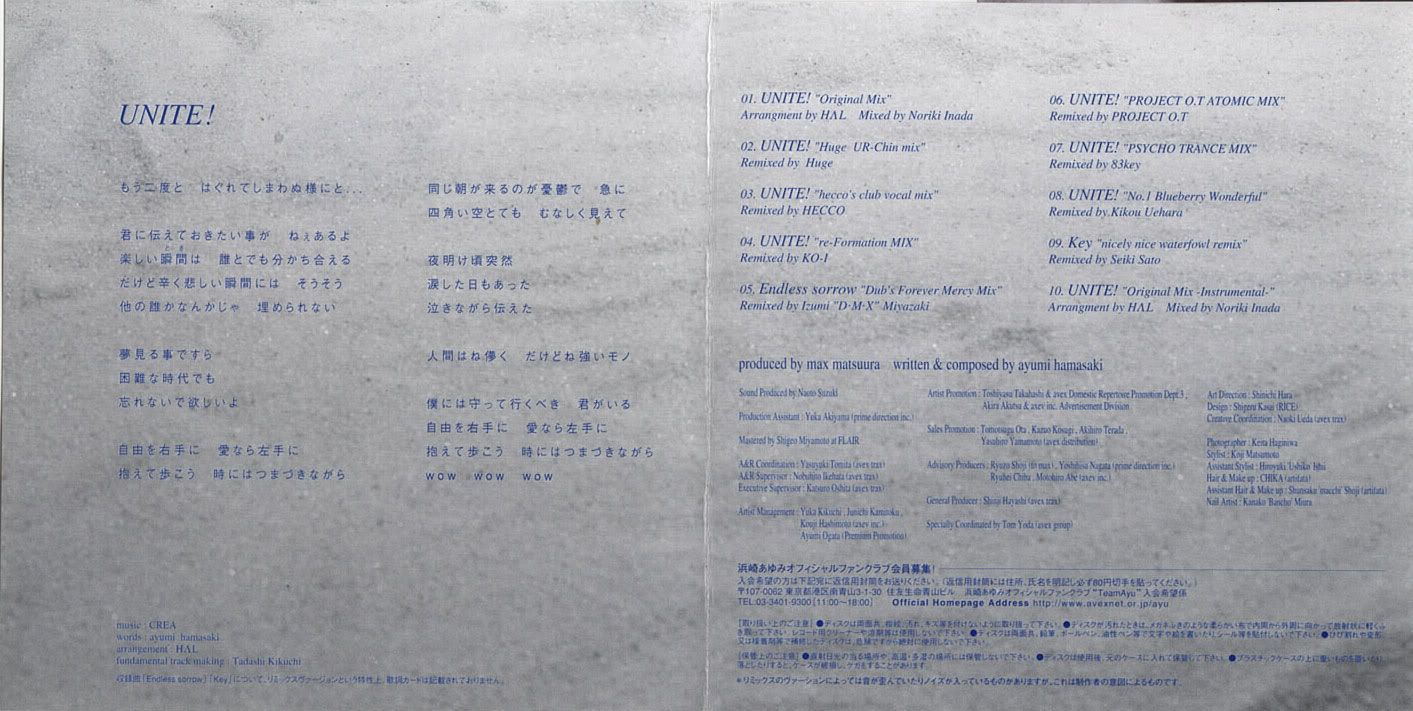 UNITE!
もう二度と　はぐれてしまわぬ様にと...
君に伝えておきたい事が　ねぇあるよ
楽しい瞬間は　誰とでも分かち合える
だけど辛く悲しい瞬間には　そうそう
他の誰かなんかじゃ　埋められない
夢見る事ですら
困難な時代でも
忘れないで欲しいよ
自由を右手に　愛なら左手に
抱えて歩こう　時にはつまづきながら
同じ朝が来るのが憂鬱で　急に
四角い空とても　むなしく見えて
夜明け頃突然
涙した日もあった
泣きながら伝えた
人間はね儚く　だけどね強いモノ
僕には守って行くべき　君がいる
自由を右手に　愛なら左手に
抱えて歩こう　時にはつまづきながら
wow　wow　wow
music : CREA
words : ayumi hamasaki
arrangement : HΛL
fundamental track making : Tadashi Kikuchi
収録曲「Endless sorrow」「Key」について、リミックスヴァージョンという特性上、歌詞カードは記載されておりません。
01. UNITE! "Original Mix"
Arrangment by HΛL　Mixed by Noriki Inada
02. UNITE! "Huge UR-Chin mix"
Remixed by Huge
03. UNITE! "hecco's club vocal mix"
Remixed by HECCO
04. UNITE! "re-Formation MIX"
Remixed by KO-I
05. Endless sorrow "Dub's Forever Mercy Mix"
Remixed by Izumi "D·M·X" Miyazaki
06. UNITE! "PROJECT O.T ATOMIC MIX"
Remixed by PROJECT O.T
07. UNITE! "PSYCHO TRANCE MIX"
Remixed by 83key
08. UNITE! "No.1 Blueberry Wonderful"
Remixed by Kikou Uehara
09. Key "nicely nice waterfowl remix"
Remixed by Seiki Sato
10. UNITE! "Original Mix -Instrumental-"
Arrangment by HΛL　Mixed by Noriki Inada
produced by max matsuura　written & composed by ayumi hamasaki
Sound Produced by Naoto Suzuki
Production Assistant : Yuka Akiyama (prime direction inc.)
Mastered by Shigeo Miyamoto at FLAIR
A&R Coordination : Yasuyuki Tomita (avex trax)
A&R Supervisor : Nobuhito Ikehata (avex trax)
Executive Supervisor : Katsuro Oshita (avex trax)
Artist Management : Yuka Kikuchi , Junichi Kamitoku ,
Kouji Hashimoto (axev inc.)
Ayumi Ogata (Premium Promotion)
Artist Promotion : Toshiyasu Takahashi & avex Domestic Repertoire Promotion Dept.3 ,
Akira Akutsu & axev inc. Advertisement Division
Sales Promotion : Tomotsugu Ota , Kazuo Kosugi , Akihiro Terada ,
Yasuhiro Yamamoto (avex distribution)
Advisory Producers : Ryuzo Shoji , Yoshihisa Nagata (prime direction inc.)
Ryuhei Chiba , Motohiro Abe (axev inc.)
General Producer : Shinji Hayashi (avex trax)
Specially Coordinated by Tom Yoda (avex group)
Art Direction : Shinichi Hara
Design : Shigeru Kasai (RICE)
Creative Coordination : Naoki Ueda (avex trax)
Photographer : Keita Haginiwa
Stylist : Koji Matsumoto
Assistant Stylist : Hiroyuki 'Ushiko' Ishii
Hair & Make up : CHIKA (artifata)
Assistant Hair & Make up : Shunsuke 'macchi' Shoji (artifata)
Nail Artist : Kanako 'Bancho' Miura
浜崎あゆみオフィシャルファンクラブ会員募集!
入会希望の方は下記宛に返信用封筒をお送りください。(返信用封筒には住所、氏名を明記し必ず80円切手を貼ってください。)
〒107-0062 東京都港区南青山3-1-30 住友生命青山ビル　浜崎あゆみオフィシャルファンクラブ "TeamAyu" 入会希望係
TEL:03-3401-9300 [11:00〜18:00]　Official Homepage Address http://www.avexnet.or.jp/ayu
[取り扱い上のご注意] ●ディスクは両面共、指紋、汚れ、キズ等を付けないように取り扱って下さい。●ディスクが汚れたときは、メガネふきのような柔らかい布で内周から外周に向かって放射状に軽くふ
き取って下さい。レコード用クリーナーや溶剤等は使用しないで下さい。●ディスクは両面共、鉛筆、ボールペン、油性ペン等で文字や絵を書いたり、シール等を貼付しないで下さい。●ひび割れや変形、
又は接着剤等で補修したディスクは、危険ですから絶対に使用しないで下さい。
[保管上のご注意] ●直射日光の当る場所や、高温・多湿の場所には保管しないで下さい。●ディスクは使用後、元のケースに入れて保管して下さい。●プラスチックケースの上に重いものを置いたり、
落としたりすると、ケースが破損し、ケガをすることがあります。
＊リミックスのヴァーションによっては音が歪んでいたりノイズが入っているものがありますが、これは制作者の意図によるものです。